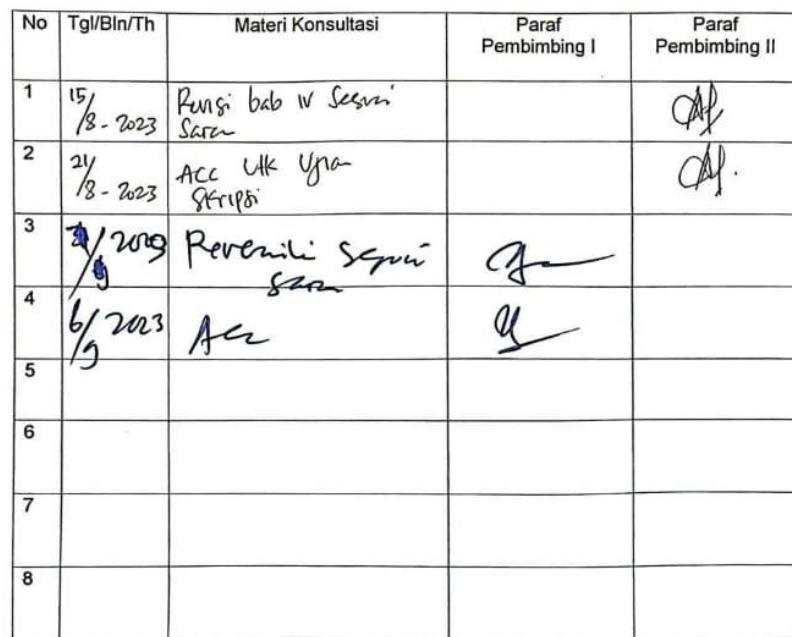 No Tgl/Bln/Th Materi Konsultasi Paraf Pembimbing I Paraf Pembimbing II
1 15/8 - 2023 Revisi bab IV Sesuai
Saran
2 21/8 - 2023 ACC Utk Ujian
Skripsi
3 2023 sesuai
saran
4 6/9 2023 Acc
5
6
7
8